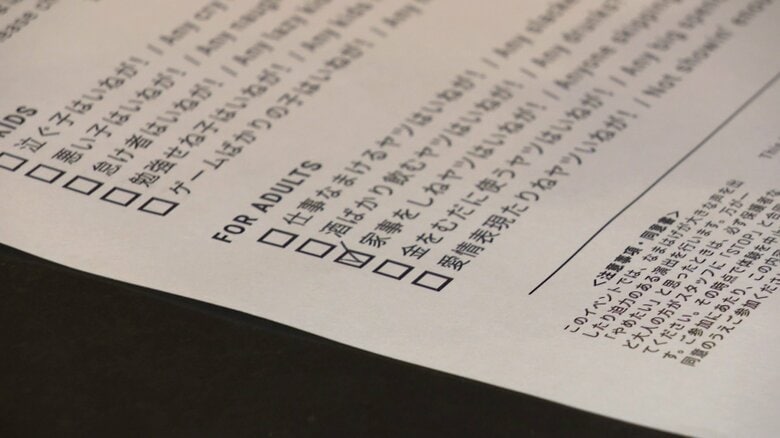 ease ch
KIDS
泣ぐ子はいねが! / Any cry
悪い子はいねが! / Any naugh
怠け者はいねが! / Any lazy kid
勉強せね子はいねが! / Any kids
ゲームばかりの子はいねが! / Any
FOR ADULTS
仕事なまけるヤツはいねが! / Any slacke
酒ばかり飲むヤツはいねが! / Any drunks
家事をしねヤツはいねが! / Anyone skipping
金をむだに使うヤツはいねが! / Any big spen
愛情表現たりねヤツいねが! / Not showin' enou
This
<注意事項・同意書>
このイベントでは、なまはげが大きな声を出
したり迫力のある演出を行います。万が一
「やめたい」と思ったときは、必ず保護者
と大人の方がスタッフに「STOP」と
てください。その時点で体験を
す。ご参加にあたり、この内容
同意のうえご参加くだ